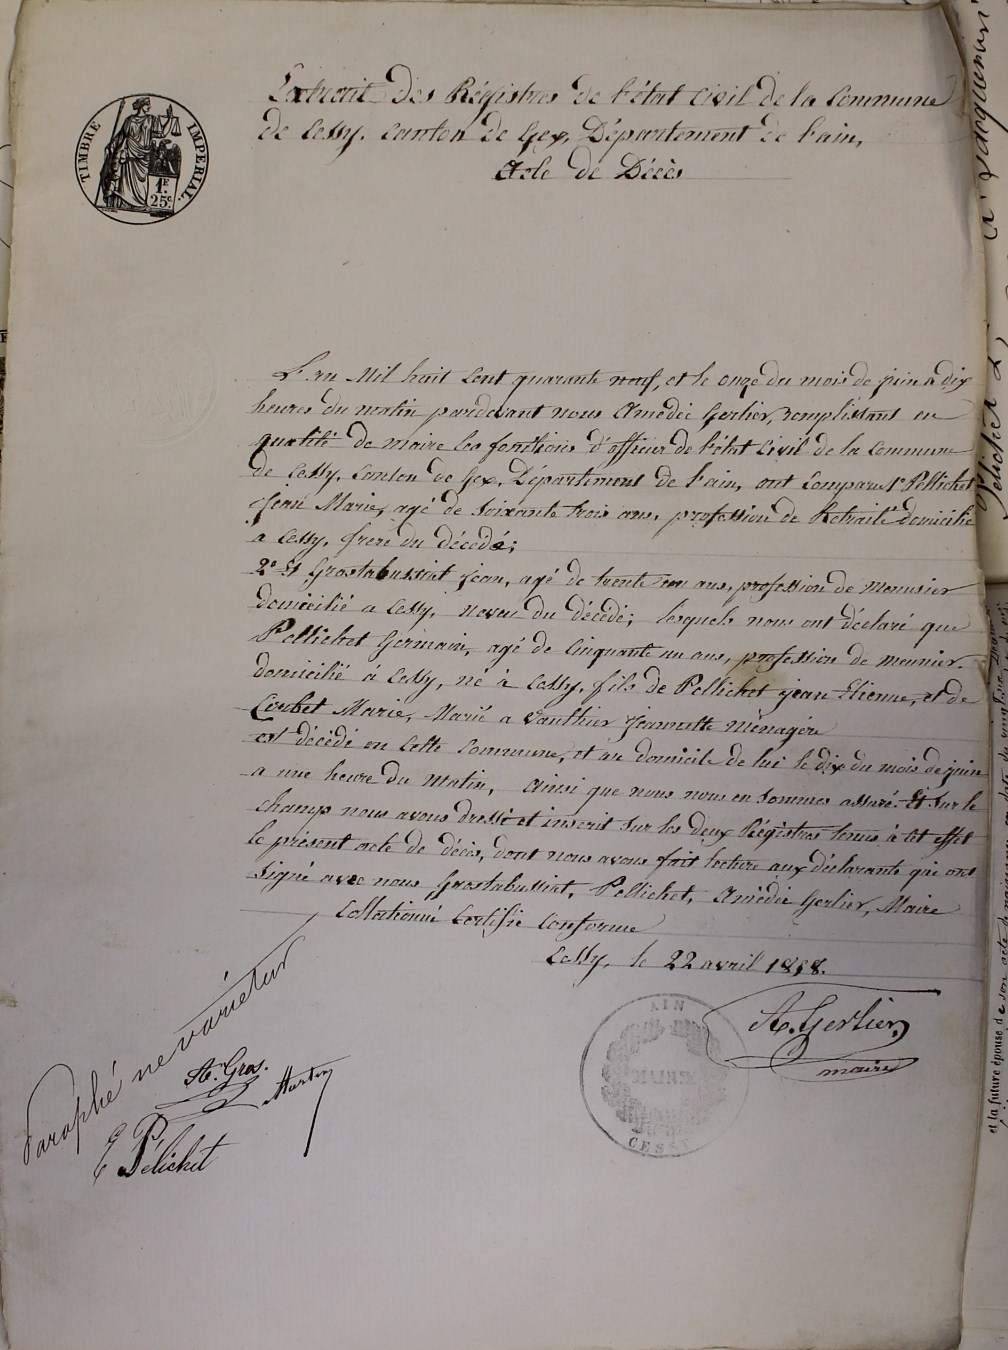 TIMBRE IMPERIAL
1F. 25c.
Extrait des Régistres de l'état Civil de la Commune
de Cessy, Canton de Gex, Département de l'ain,
Acte de Décès
L'an Mil huit Cent quarante neuf, et le onze du mois de juin a dix
heures du matin pardevant nous Amédée Gerlier, remplissant en
qualité de maire les fonctions d'officier de l'état Civil de la Commune
de Cessy, Canton de Gex, Département de l'ain, ont Comparu 1° Pellichet
Jean Marie, agé de Soixante trois ans, profession de Retraité domicilié
a Cessy, frere du décédé;
2° Et Grostabussiat Jean, agé de trente un ans, profession de Menuisier
domicilié a Cessy, neveu du décédé; lesquels nous ont déclaré que
Pellichet Germain, agé de Cinquante un ans, profession de meunier
domicilié à Cessy, né à Cessy, fils de Pellichet jean Etienne, et de
Marie, Marié a Vauthier Jeannette Ménagère
est décédé en Cette Commune, et au domicile de lui le dix du mois de juin
a une heure du Matin, Ainsi que nous nous en Sommes assuré. Et Sur le
champ nous avons dressé et inscrit Sur les deux Régistres tenus à Cet effet
le présent acte de décès, dont nous avons fait lecture aux déclarants qui ont
Signé avec nous Grostabussiat, Pellichet, Amédée Gerlier, Maire
Collationné Certifié Conforme
Cessy, le 22 avril 1858.
A. Gerlier
maire
AIN
MAIRIE
CESSY
Paraphé ne varietur
At. Gros.
Martin
E Pélichet